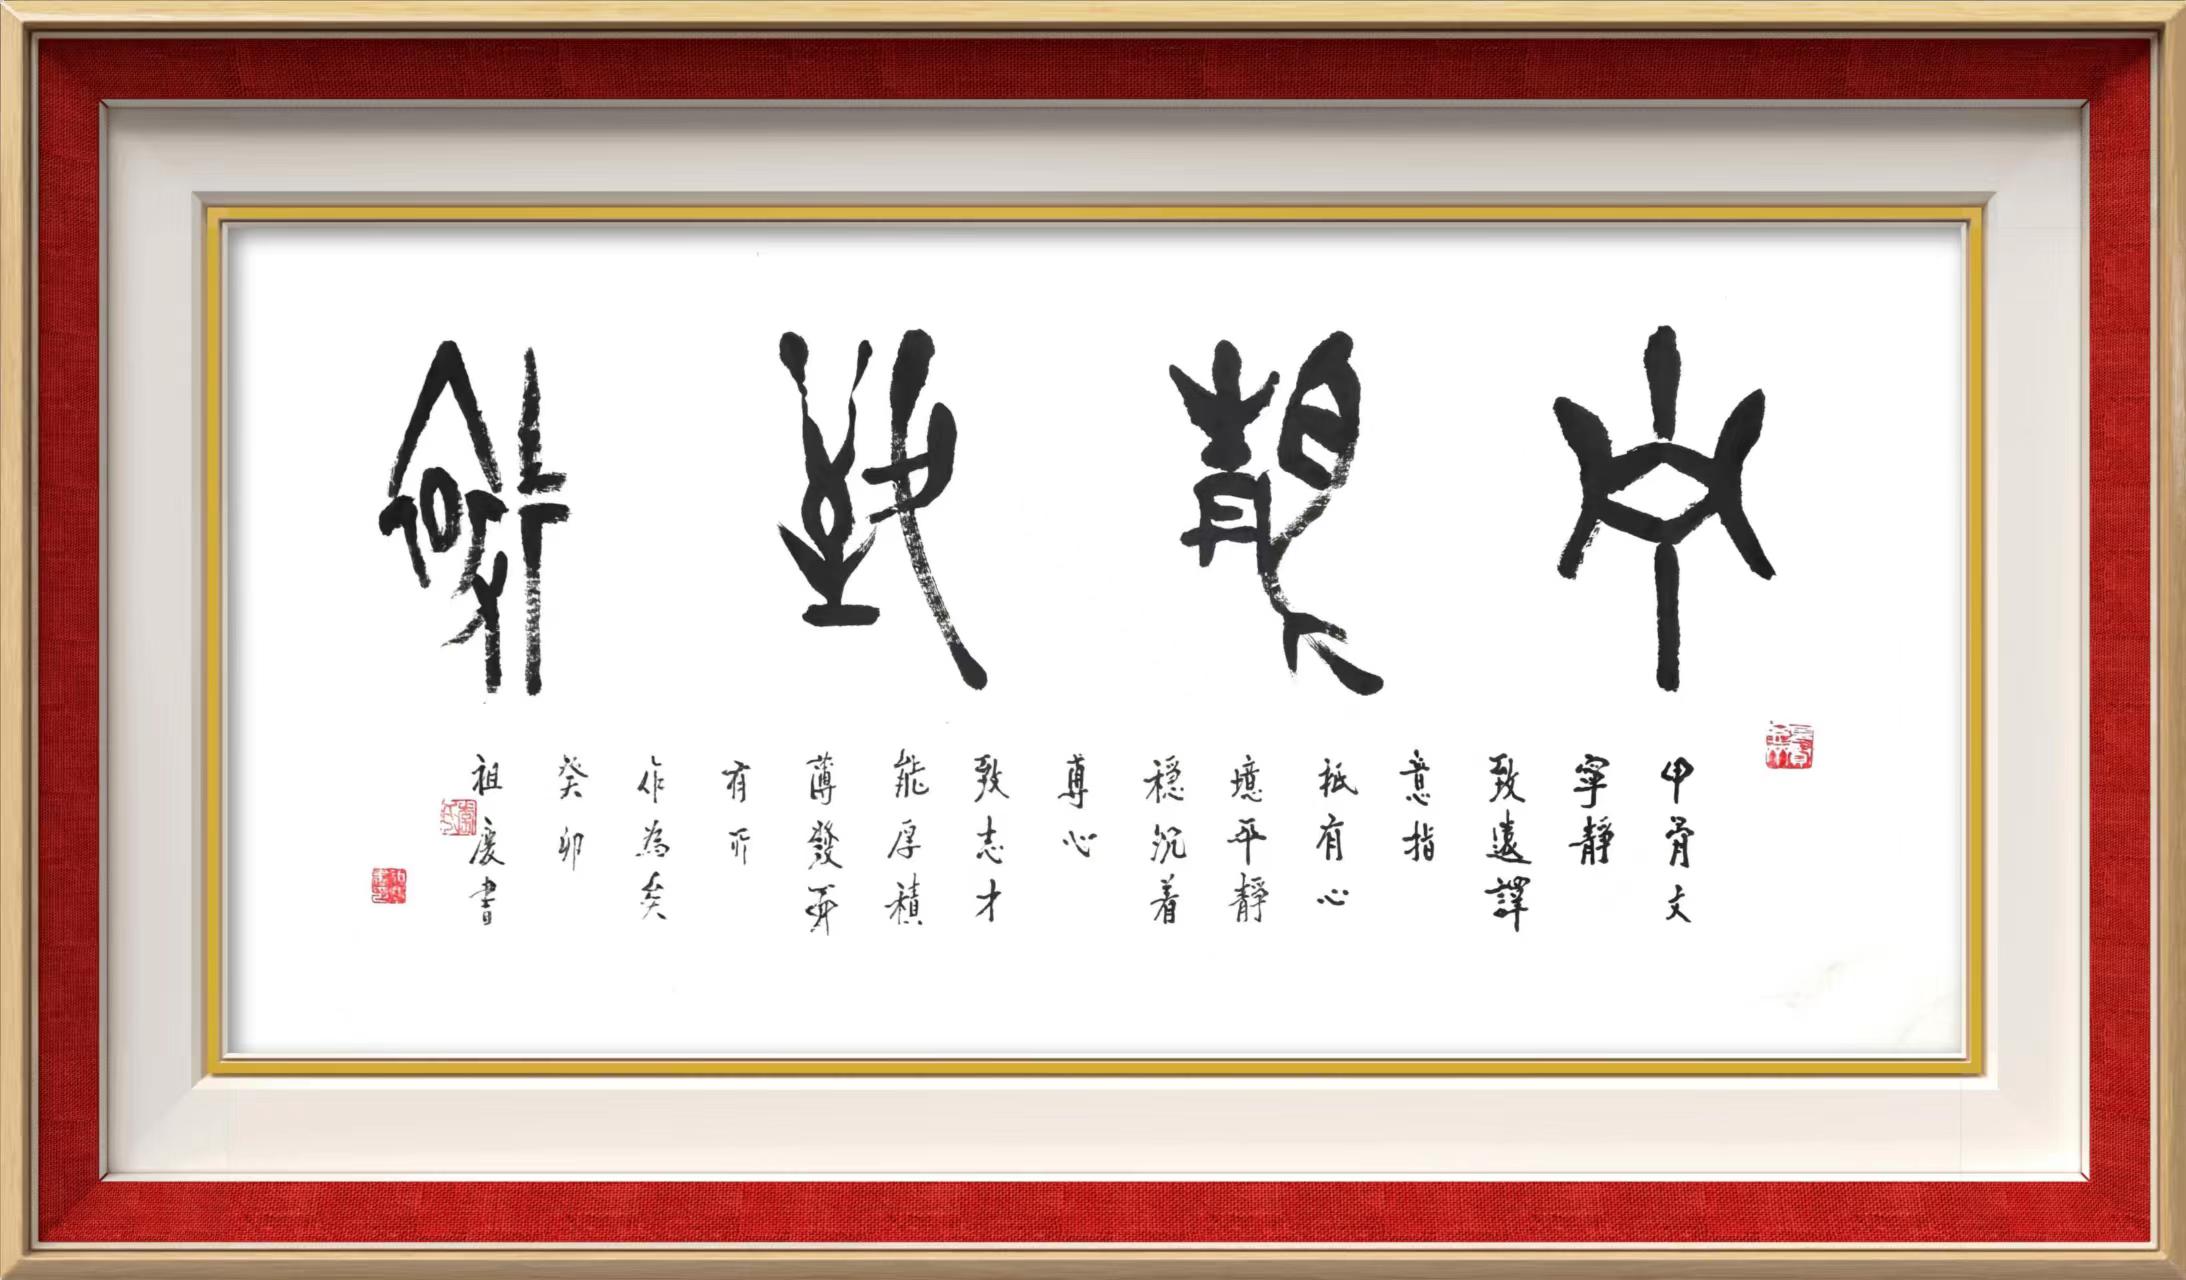 寧靜致遠
甲骨文
寧靜
致遠譯
意指
祇有心
境平靜
穩沉着
專心
致志才
能厚積
薄發
有所
作為矣
癸卯
祖慶書